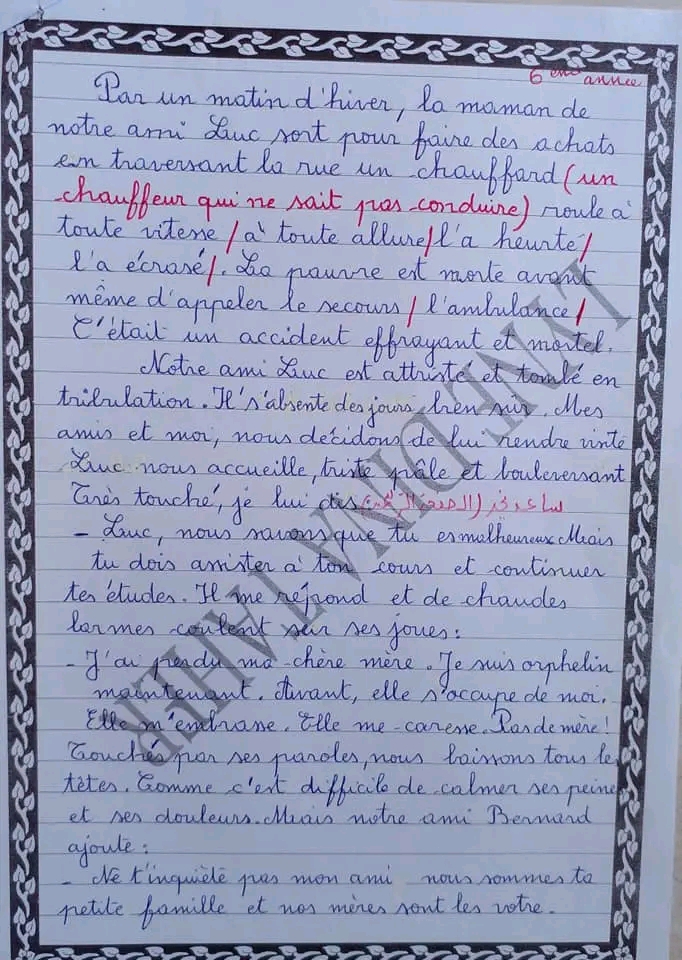 6ème année
Par un matin d'hiver, la maman de
notre ami Luc sort pour faire des achats
en traversant la rue un chauffard (un
chauffeur qui ne sait pas conduire) roule à
toute vitesse / à toute allure / l'a heurté /
l'a écrasé /. La pauvre est morte avant
même d'appeler le secours / l'ambulance /
C'était un accident effrayant et mortel.
Notre ami Luc est attristé et tombé en
tribulation. Il s'absente des jours bien sûr. Mes
amis et moi, nous décidons de lui rendre visite
Luc nous accueille, triste pâle et bouleversant
Très touché, je lui dis
- Luc, nous savons que tu es malheureux Mais
tu dois assister à ton cours et continuer
tes études. Il me répond et de chaudes
larmes coulent sur ses joues :
- J'ai perdu ma chère mère. Je suis orphelin
maintenant. Avant, elle s'occupe de moi.
Elle m'embrasse. Elle me caresse. Pas de mère !
Touchés par ses paroles, nous baissons tous le
têtes. Comme c'est difficile de calmer ses peine
et ses douleurs. Mais notre ami Bernard
ajoute :
- Ne t'inquiète pas mon ami nous sommes ta
petite famille et nos mères sont les votre.